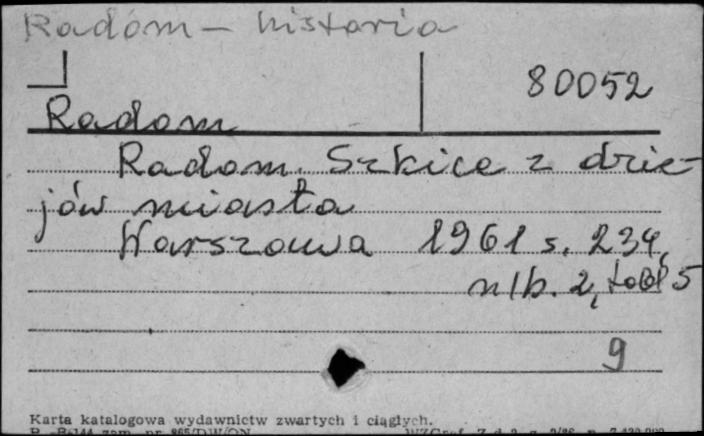 Radom - historia
80052
Radom
Radom. Szkice z dzie-
jów miasta
Warszawa 1961 s. 234,
nlb. 2, tabl 5
9
Karta katalogowa wydawnictw zwartych i ciągłych.